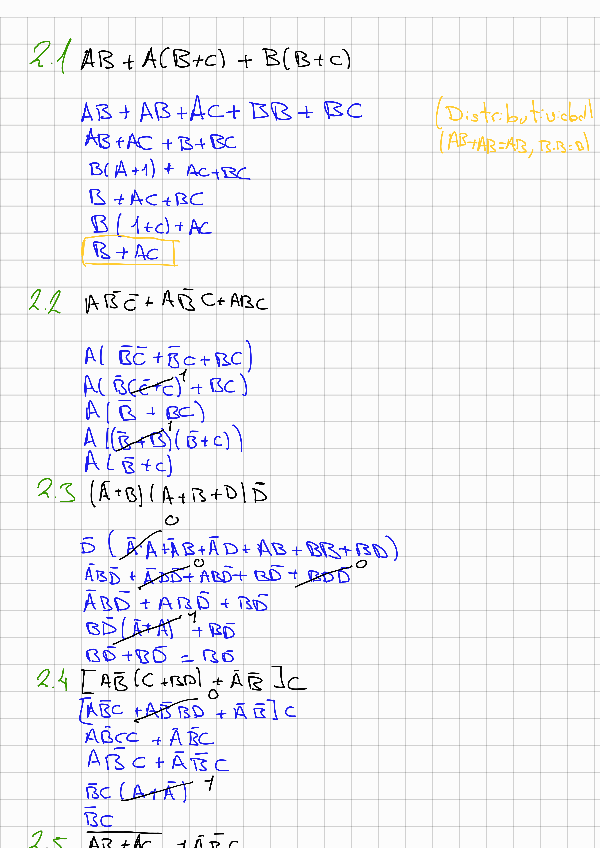 2.1 AB + A(B+C) + B(B+C)
AB + AB + AC + BB + BC (Distributividad)
AB+AC + B+BC (AB+AB=AB, B·B=B)
B(A+1) + AC+BC
B + AC+BC
B(1+C)+AC
B + AC
2.2 AB̄C̄ + AB̄C + ABC
A(B̄C̄ + B̄C + BC)
A(B̄(C̄+C) 1 + BC)
A(B̄ + BC)
A((B̄+B) 1 (B̄+C))
A(B̄+C)
2.3 (Ā+B)(A+B+D)D̄
D̄(ĀA 0 +ĀB+ĀD+AB+BB+BD)
ĀBD̄ + ĀDD̄ 0 + ABD̄+ BD̄ + BDD̄ 0
ĀBD̄ + ABD̄ + BD̄
BD̄(Ā+A) 1 + BD̄
BD̄+BD̄ = BD̄
2.4 [AB̄(C+BD) + ĀB̄]C
[AB̄C + AB̄BD 0 + ĀB̄]C
AB̄CC + ĀB̄C
AB̄C + ĀB̄C
B̄C(A+Ā) 1
B̄C
2.5